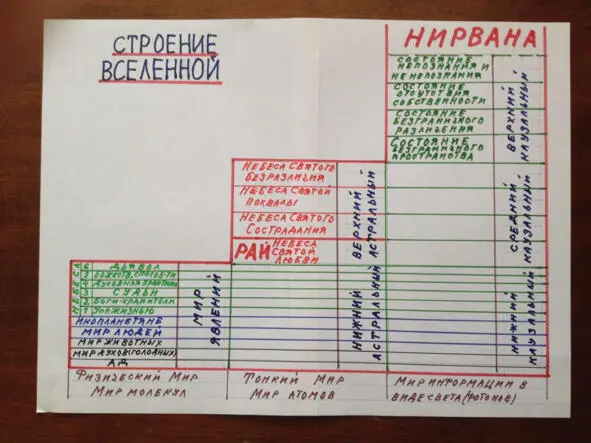 СТРОЕНИЕ
ВСЕЛЕННОЙ
НИРВАНА
СОСТОЯНИЕ
НЕПОЗНАНИЯ И
НЕНЕПОЗНАНИЯ
СОСТОЯНИЕ
ОТСУТСТВИЯ
СОБСТВЕННОСТИ
СОСТОЯНИЕ
БЕЗГРАНИЧНОГО
РАЗЛИЧЕНИЯ
СОСТОЯНИЕ
БЕЗГРАНИЧНОГО
ПРОСТРАНСТВА
ВЕРХНИЙ
КАУЗАЛЬНЫЙ
СРЕДНИЙ
КАУЗАЛЬНЫЙ
НИЖНИЙ
КАУЗАЛЬНЫЙ
НЕБЕСА СВЯТОГО
БЕЗРАЗЛИЧИЯ
НЕБЕСА СВЯТОЙ
ПОХВАЛЫ
НЕБЕСА СВЯТОГО
СОСТРАДАНИЯ
РАЙ НЕБЕСА
СВЯТОЙ
ЛЮБВИ
ВЕРХНИЙ
АСТРАЛЬНЫЙ
НИЖНИЙ
АСТРАЛЬНЫЙ
6 ДЬЯВОЛ
5 БОЖЕСТВ. СПОСОБ-ТИ
4 ДУХОВНАЯ ПРАКТИКА
3 СУДЬИ
2 БОГИ-ХРАНИТЕЛИ
1 УПР. ЖИЗНЬЮ
ИНОПЛАНЕТЯНЕ
МИР ЛЮДЕЙ
МИР ЖИВОТНЫХ
МИР ДУХОВ (ГОЛОДНЫХ)
АД
МИР
ЯВЛЕНИЙ
ФИЗИЧЕСКИЙ МИР
МИР МОЛЕКУЛ
ТОНКИЙ МИР
МИР АТОМОВ
МИР ИНФОРМАЦИИ В
ВИДЕ СВЕТА (ФОТОНОВ)